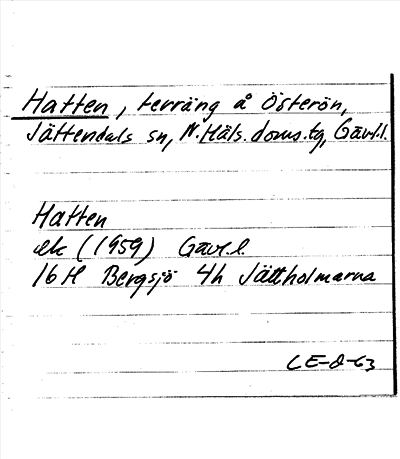 Hatten, terräng å Österön,
Jättendals sn, N. Häls. doms.tg, Gävl.l.
Hatten
ek (1959) Gävl.l.
16 H Bergsjö 4h Jättholmarna